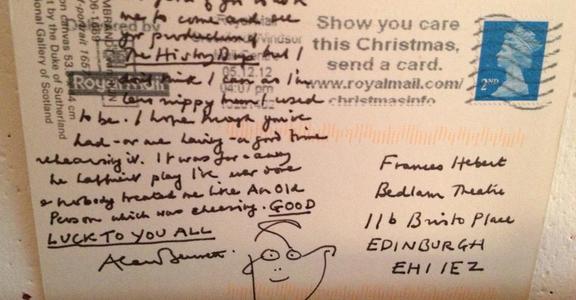 me to come and see
for production
The History Boys but I
don't think I can as I'm
less nippy than I used
to be. I hope though you've
had - or are having - a good time
rehearsing it. It was far & away
the happiest play I've ever done
& nobody treated me like An Old
Person which was cheering. GOOD
LUCK TO YOU ALL
Alan Bennett
Frances Hebert
Bedlam Theatre
11b Bristo Place
EDINBURGH
EH1 1EZ
Delivered by
Royal Mail
Windsor
05.12.12
04:07 pm
Show you care
this Christmas,
send a card.
www.royalmail.com/
christmasinfo
2ND
REMBRANDT
-portrait 165
on canvas 53
t by the Duke of Sutherland
ional Gallery of Scotland